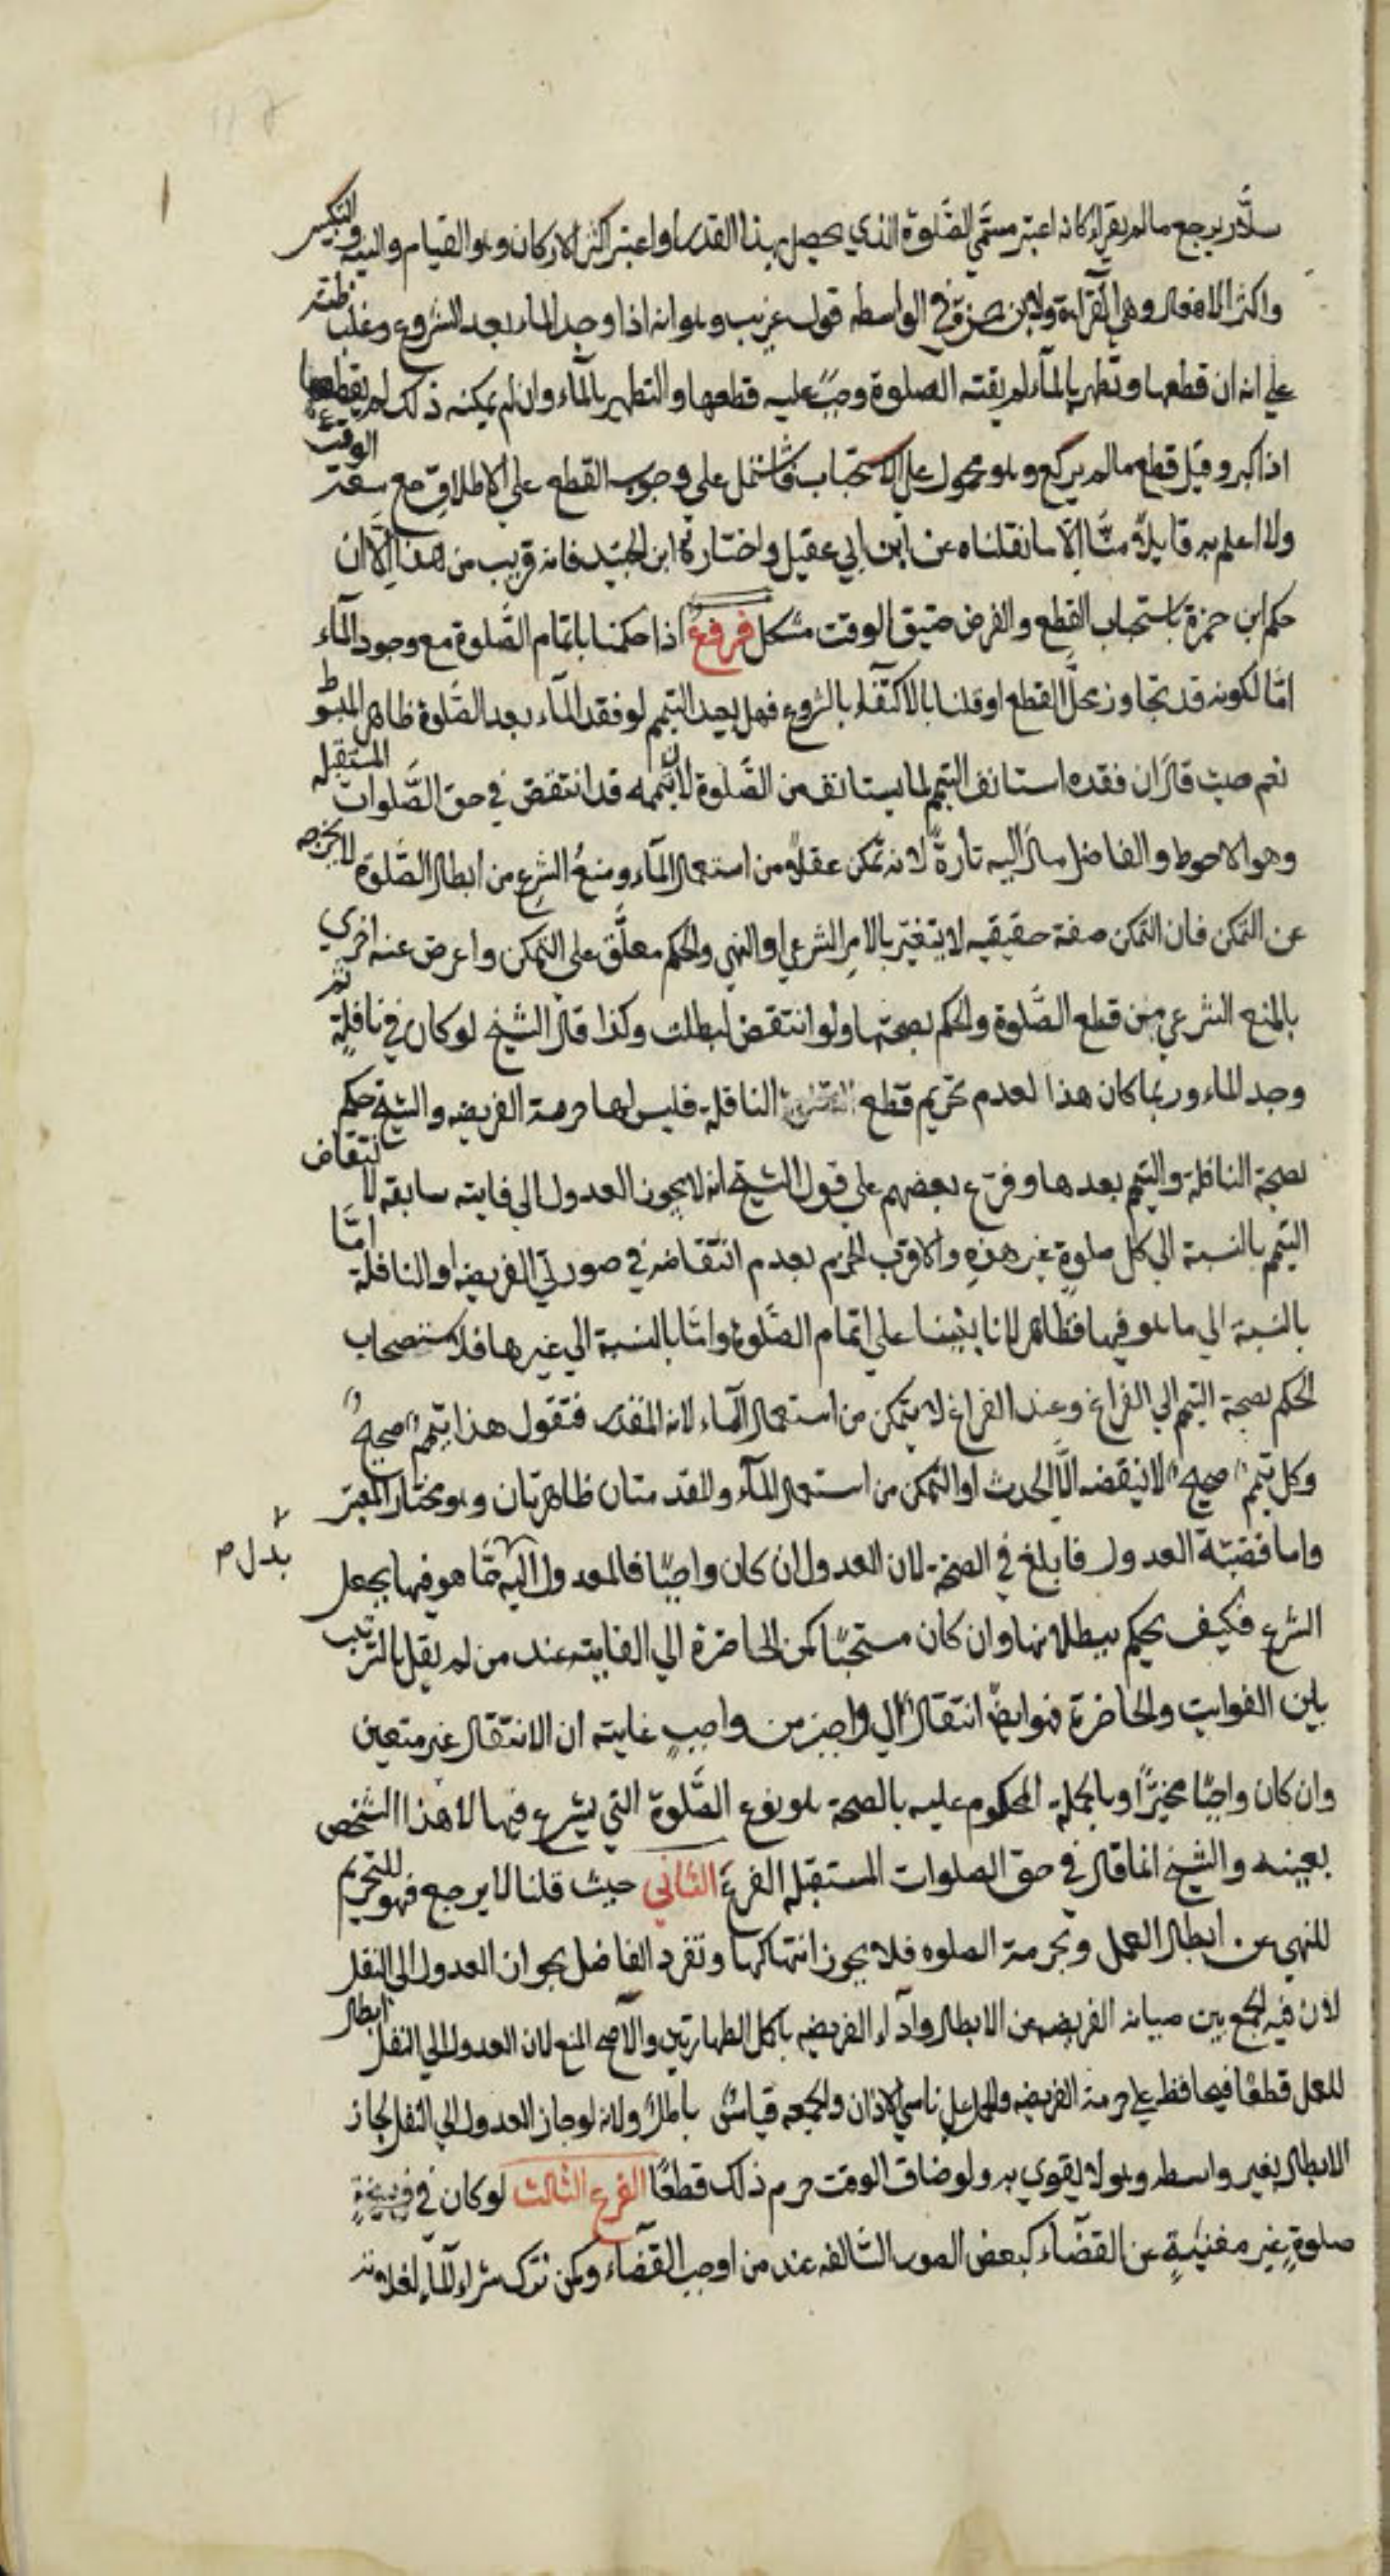 سلّار يرجع ما لم يقرا وكانه اعتبر مسمّي الصّلوة الذي يحصل بهذا القدر او اعتبر اكثر الاركان وهو القيام والنيه والتكبير
واكثر الافعال وهي القرآءة ولابن حمزة في الواسطه قول غريب وهو انه اذا وجد الماء بعد الشروع وغلب ظنه
علي انه ان قطعها وتطهر بالمآء لم يفته الصلوة وجب عليه قطعها والتطهير بالمآء وان لم يمكنه ذلك لم يقطعها
اذا كبر وقيل قطع ما لم يركع وهو محمول علي الاستحباب فاشتمل علي وجوب القطع علي الاطلاق مع سعة الوقت
ولا اعلم به قايلا منّا الّا ما نقلناه عن ابن ابي عقيل واختاره ابن الجنيد فانه قريب من هذا الّا ان
حكم ابن حمزة باستحباب القطع والفرض ضيق الوقت مشكل فروع اذا حكمنا باتمام الصّلوة مع وجود المآء
امّا لكونه قد تجاوز محلّ القطع او قلنا بالاكتفآء بالشروع فهل يعيد التيمم لو فقد المآء بعد الصّلوة ظاهر المبسوط
نعم حيث قال ان فقده استانف التيمم لما يستانف من الصّلوة لان تيممه قد انتقض في حق الصّلوات المستقبله
وهو الاحوط والفاضل مال اليه تارةً لانه تمكن عقلا من استعمال المآء ومنعُ الشرع من ابطال الصّلوة لا يخرجه
عن التمكن فان التمكن صفة حقيقيه لا يتغيّر بالامر الشرعي او النهي والحكم معلّق علي التمكن واعرض عنه اخري
بالمنع الشرعي من قطع الصّلوة والحكم بصحتها ولو انتقض لبطلت وكذا قال الشيخ لو كان في نافلة ثم
وجد الماء وربما كان هذا لعدم تحريم قطع النافلة فليس لها حرمة الفريضه والشيخ حكم
بصحة النافلة والتيمم بعدها وفرّع بعضهم علي قول الشيخ انه لا يجوز العدول الي فايته سابقه لانتقاض
التيمم بالنسبة الي كل صلوةٍ غير هذهِ والاقرب الجزم بعدم انتقاضه في صورتي الفريضه والنافلة امّا
بالنسبة الي ما هو فيها فظاهر لانا بنينا علي اتمام الصّلوة وامّا بالنسبة الي غيرها فلاستصحاب
الحكم بصحة التيمم الي الفراغ وعند الفراغ لا يتمكن من استعمال المآء لانه المقدر فنقول هذا تيمم صحيح
وكل تيمم صحيح لا ينقضه الّا الحدث او التمكن من استعمال المآء والمقدمتان ظاهرتان وهو مختار المعتبر
واما قضيّة العدول فابلغ في الصحة لان العدول ان كان واجبًا فالمعدول اليه ممّا هو فيها بجعل
بدل م
الشرع فكيف يحكم ببطلانها وان كان مستحبًا كمن الحاضرة الي الفايته عند من لم يقل بالترتيب
بين الفوايت والحاضرة فهو ايضًا انتقال الي واجب من واجبٍ غايته ان الانتقال غير متعين
وان كان واجبًا مخيّرًا وبالجملة المحكوم عليه بالصحة هو نوع الصّلوة التي يشرع فيها لا هذا الشخص
بعينه والشيخ انما قال في حق الصلوات المستقبله الفرع الثاني حيث قلنا لا يرجع فهو للتحريم
للنهي عن ابطال العمل ولحرمة الصلوه فلا يجوز انتهاكها وتفرد الفاضل بجواز العدول الي النفل
لان فيه لجمع بين صيانه الفريضه عن الابطال وادآء الفريضه باكمل الطهارتين والاصح المنع لان العدول الي النفل ابطال
للعمل قطعًا فيحافظ علي حرمة الفريضه والحمل علي ناسي الاذان والجمعه قياسٌ باطل ولانه لو جاز العدول الي النفل لجاز
الابطال بغير واسطه وهو لا يقوي به ولو ضاق الوقت حرم ذلك قطعًا الفرع الثالث لو كان في فريضةٍ
صلوةٍ غير مغنيةٍ عن القضآء كبعض الصور السّالفه عند من اوجب القضآء وكمن ترك شراء المآء لغلاوته